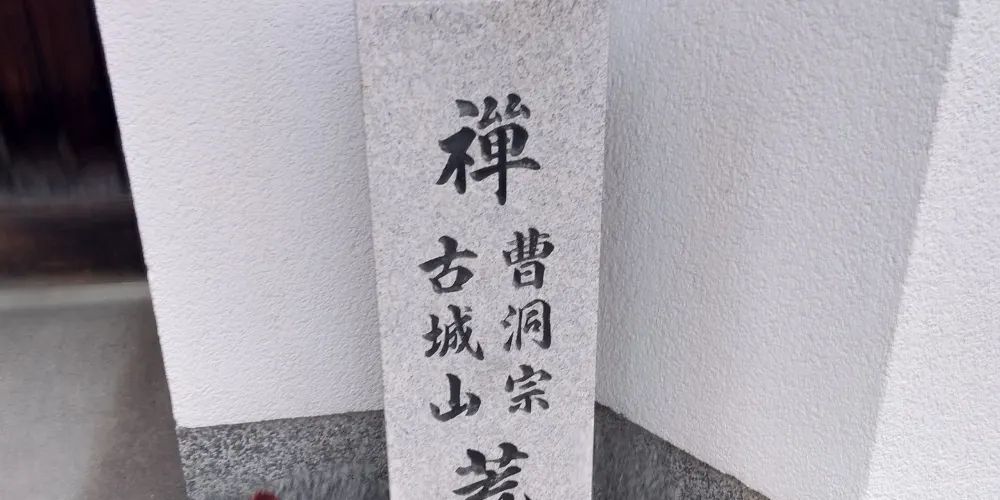 禅
曹洞宗
古城山